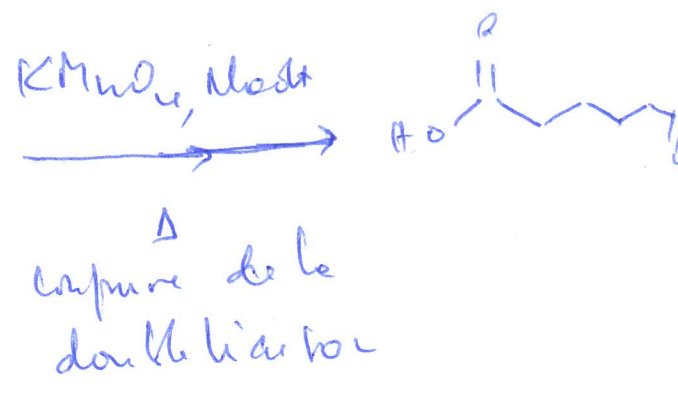 KMnO4,
O
HO
Δ
coupure de la
double liaison